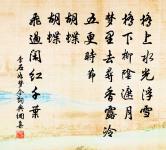 橋上水光浮雪
橋下柳陰遮月
夢里去尋香露冷
五更時節
胡蝶
胡蝶
飛過閑紅千葉
李石如夢令詞